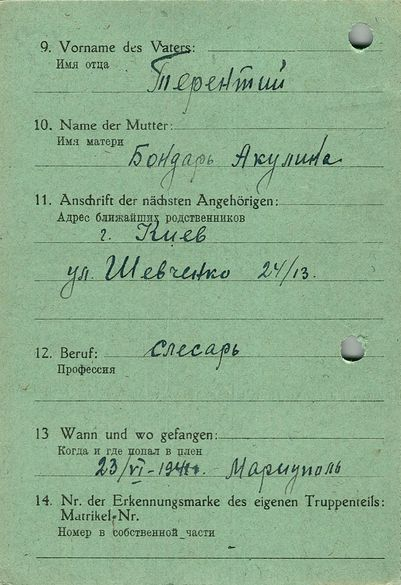 9. Vorname des Vaters:
Имя отца
Терентий
10. Name der Mutter:
Имя матери
Бондарь Акулина
11. Anschrift der nächsten Angehörigen:
Адрес ближайших родственников
г. Киев
ул. Шевченко 24/13.
12. Beruf: слесарь
Профессия
13 Wann und wo gefangen:
Когда и где попал в плен
23/VI-1941г. Мариуполь
14. Nr. der Erkennungsmarke des eigenen Truppenteils:
Matrikel-Nr.
Номер в собственной части